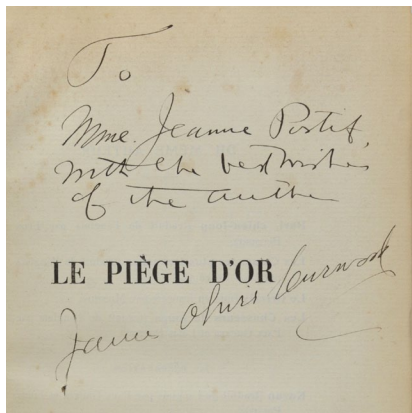 To
Mme. Jeanne Postif,
with the best wishes
of the author
LE PIÈGE D'OR
James Oliver Curwood